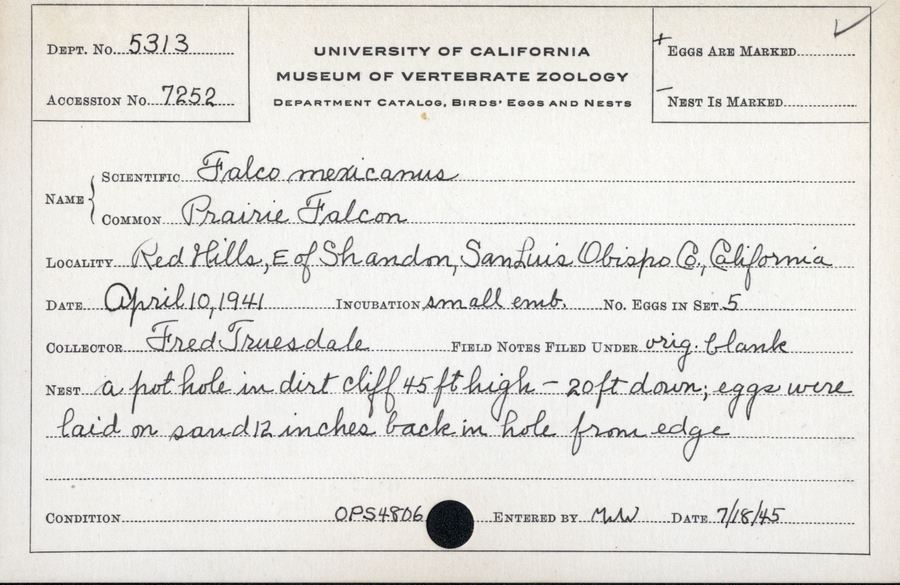 Dept. No. 5313
Accession No. 7252
UNIVERSITY OF CALIFORNIA
MUSEUM OF VERTEBRATE ZOOLOGY
Department Catalog, Birds' Eggs and Nests
+ Eggs Are Marked ✓
− Nest Is Marked
Name { Scientific Falco mexicanus
Common Prairie Falcon
Locality Red Hills, E of Shandon, San Luis Obispo Co., California
Date April 10, 1941 Incubation small emb. No. Eggs in Set 5
Collector Fred Truesdale Field Notes Filed Under orig. blank
Nest a pot hole in dirt cliff 45 ft high – 20 ft down; eggs were
laid on sand 12 inches back in hole from edge
Condition OPS4806 Entered by MWW Date 7/18/45